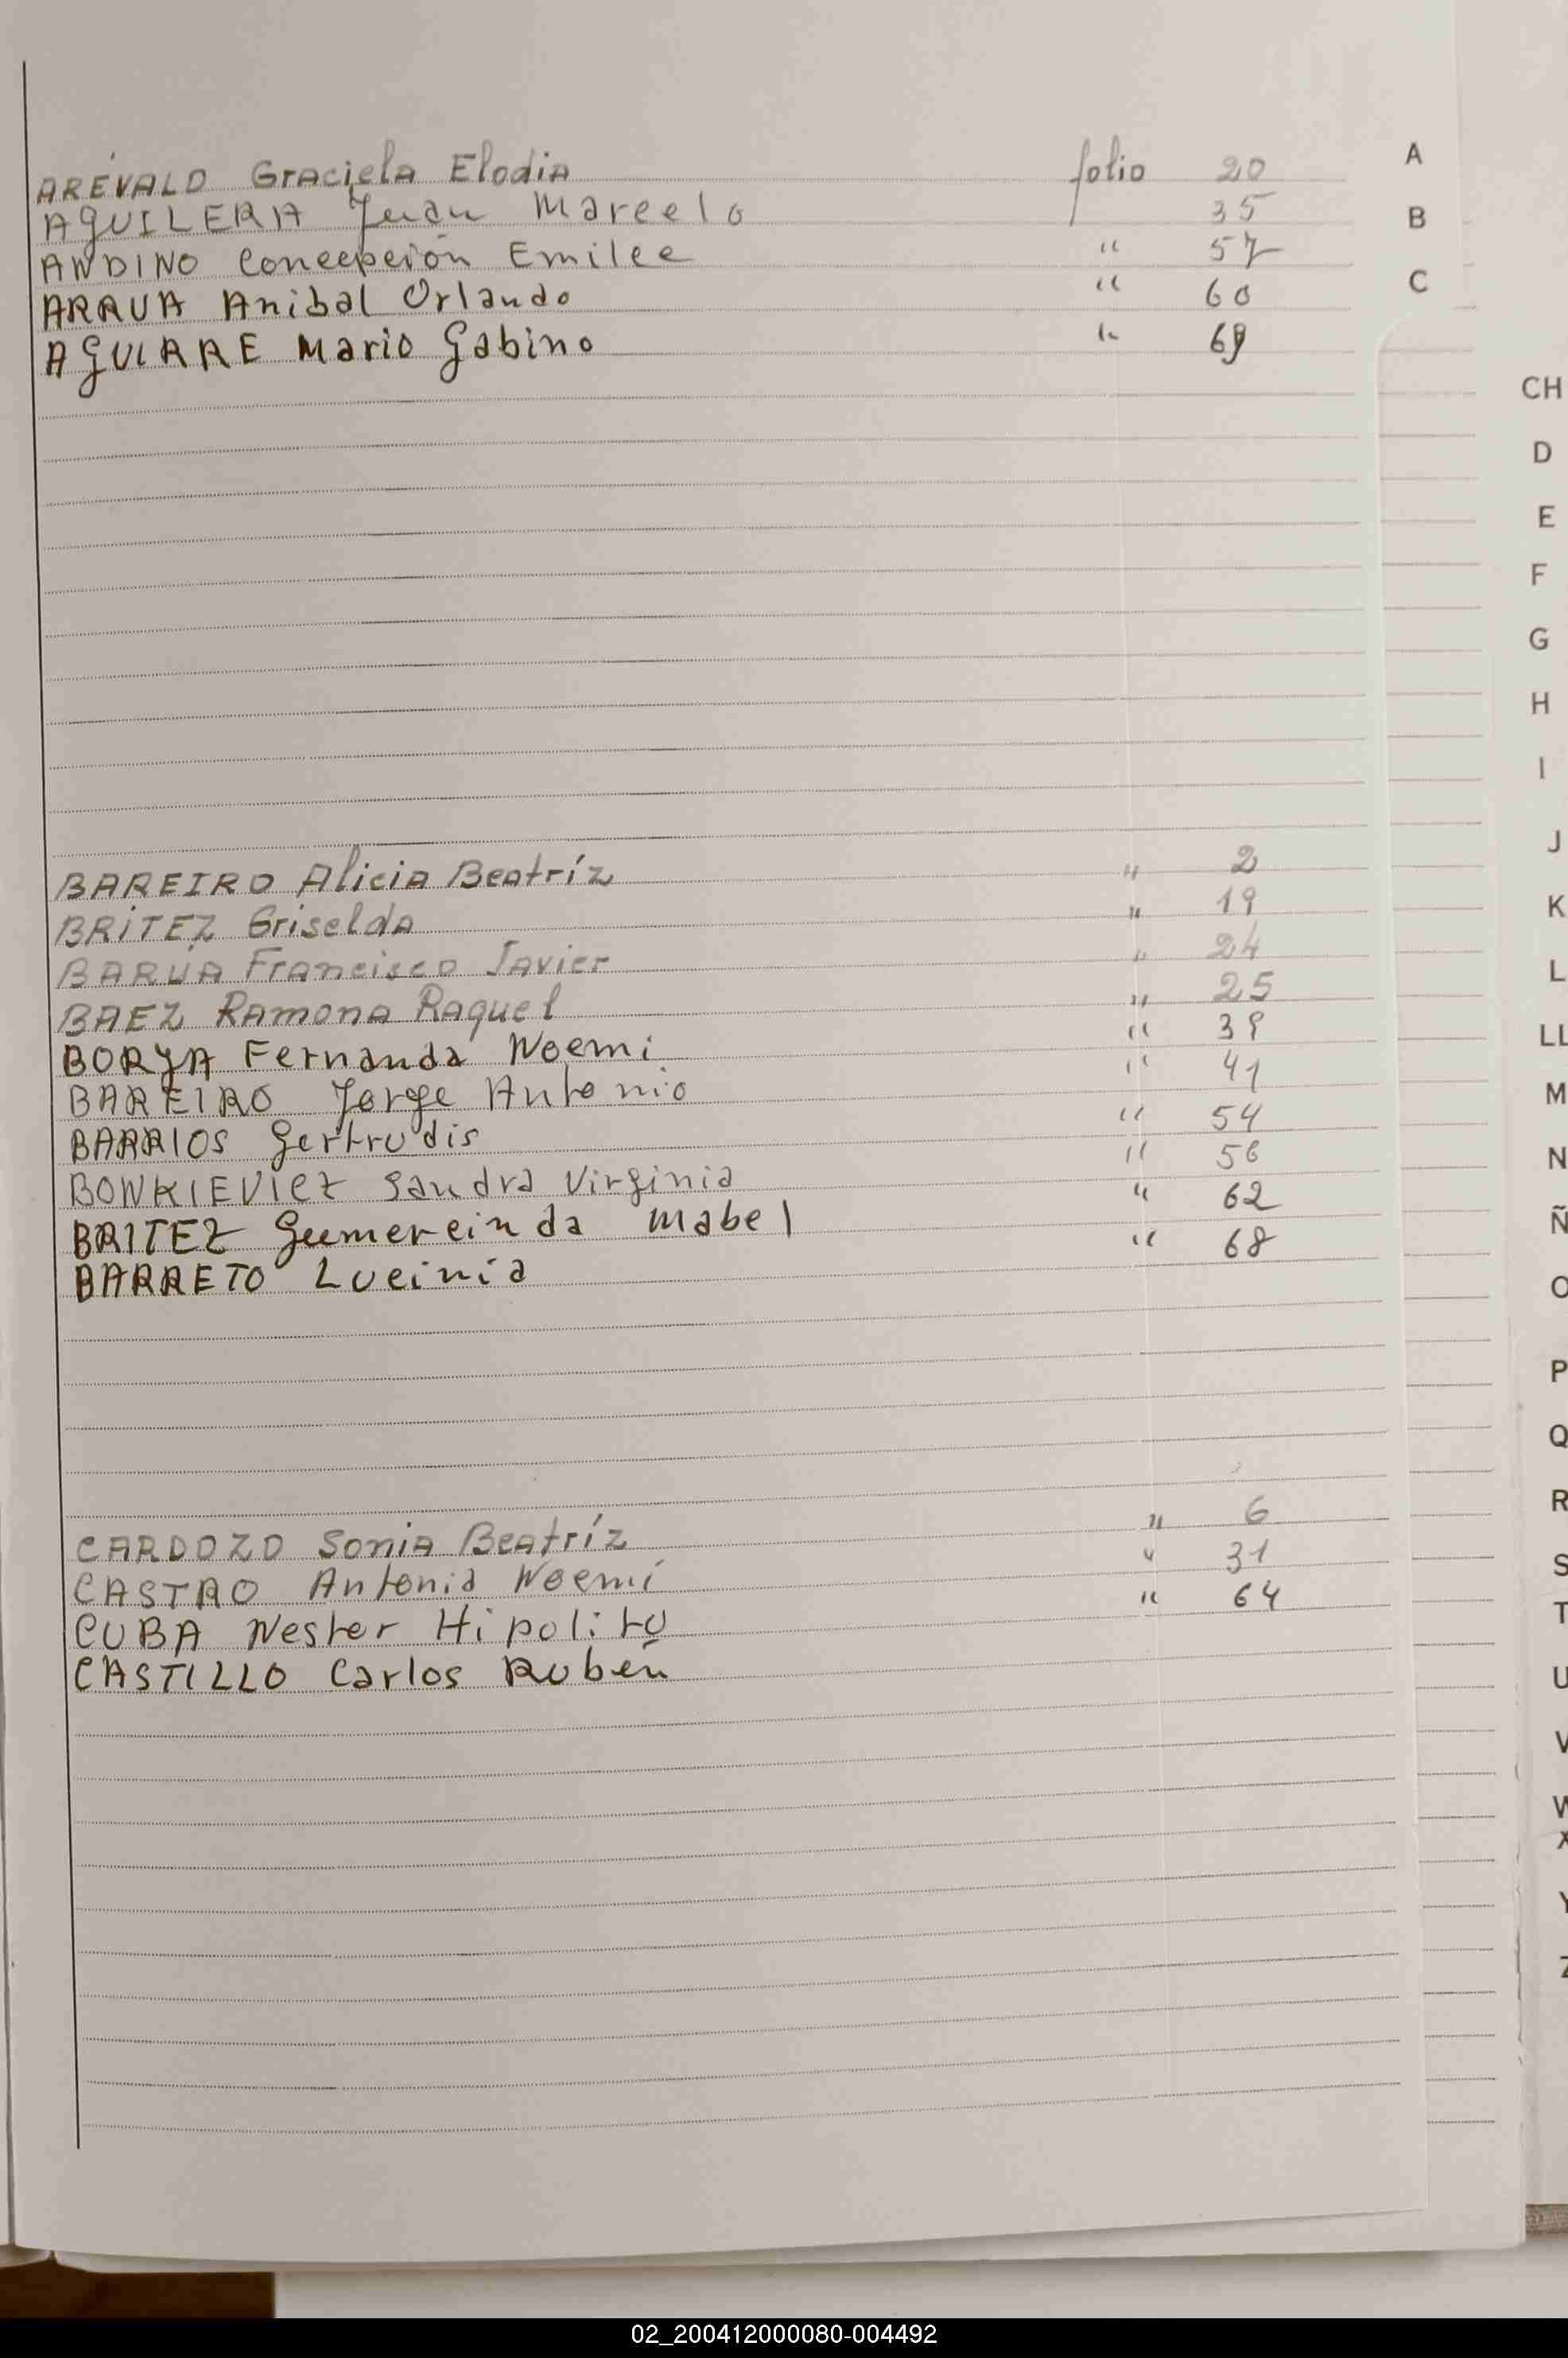 ARÉVALO Graciela Elodia folio 20 A
AGUILERA Juan Marcelo 35 B
ANDINO Concepción Emilce " 57
ARAUA Anibal Orlando " 60 C
AGUIARE Mario Gabino " 69
CH
D
E
F
G
H
I
J
BAREIRO Alicia Beatríz " 2
BRÍTEZ Griselda " 19 K
BARÚA Francisco Javier " 24
BAEZ Ramona Raquel " 25 L
BORJA Fernanda Noemi " 39
BAREIRO Jorge Antonio " 41 LL
BARRIOS Gertrudis " 54 M
BONKIEVICZ Sandra Virginia " 56 N
BRITEZ Gumercinda Mabel " 62
BARRETO Lucinia " 68 Ñ
O
P
Q
CARDOZO Sonia Beatríz " 6 R
CASTRO Antonia Noemí " 31 S
CUBA Nestor Hipolito " 64 T
CASTILLO Carlos Rubén
U
V
W
X
Y
Z
02_200412000080-004492